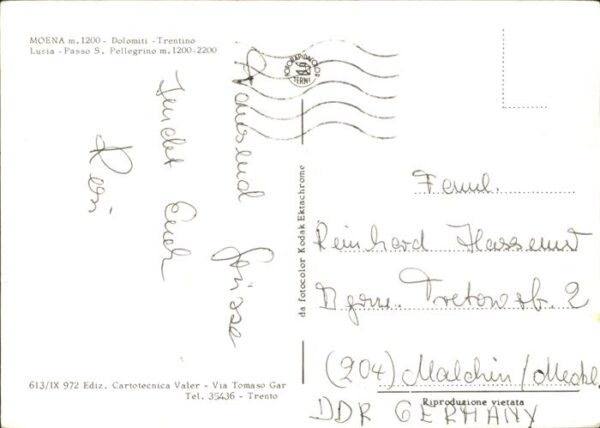 MOENA m. 1200 - Dolomiti - Trentino
Lusia - Passo S. Pellegrino m. 1200-2200
FOTORAPIDACOLOR
TERNI
Tausend Grüsse
sendet Euch
Resi
da fotocolor Kodak Ektachrome
Faml.
Reinhard
2
(204) Malchin/Meckl.
DDR GERMANY
613/IX 972 Ediz. Cartotecnica Valer - Via Tomaso Gar
Tel. 35436 - Trento
Riproduzione vietata